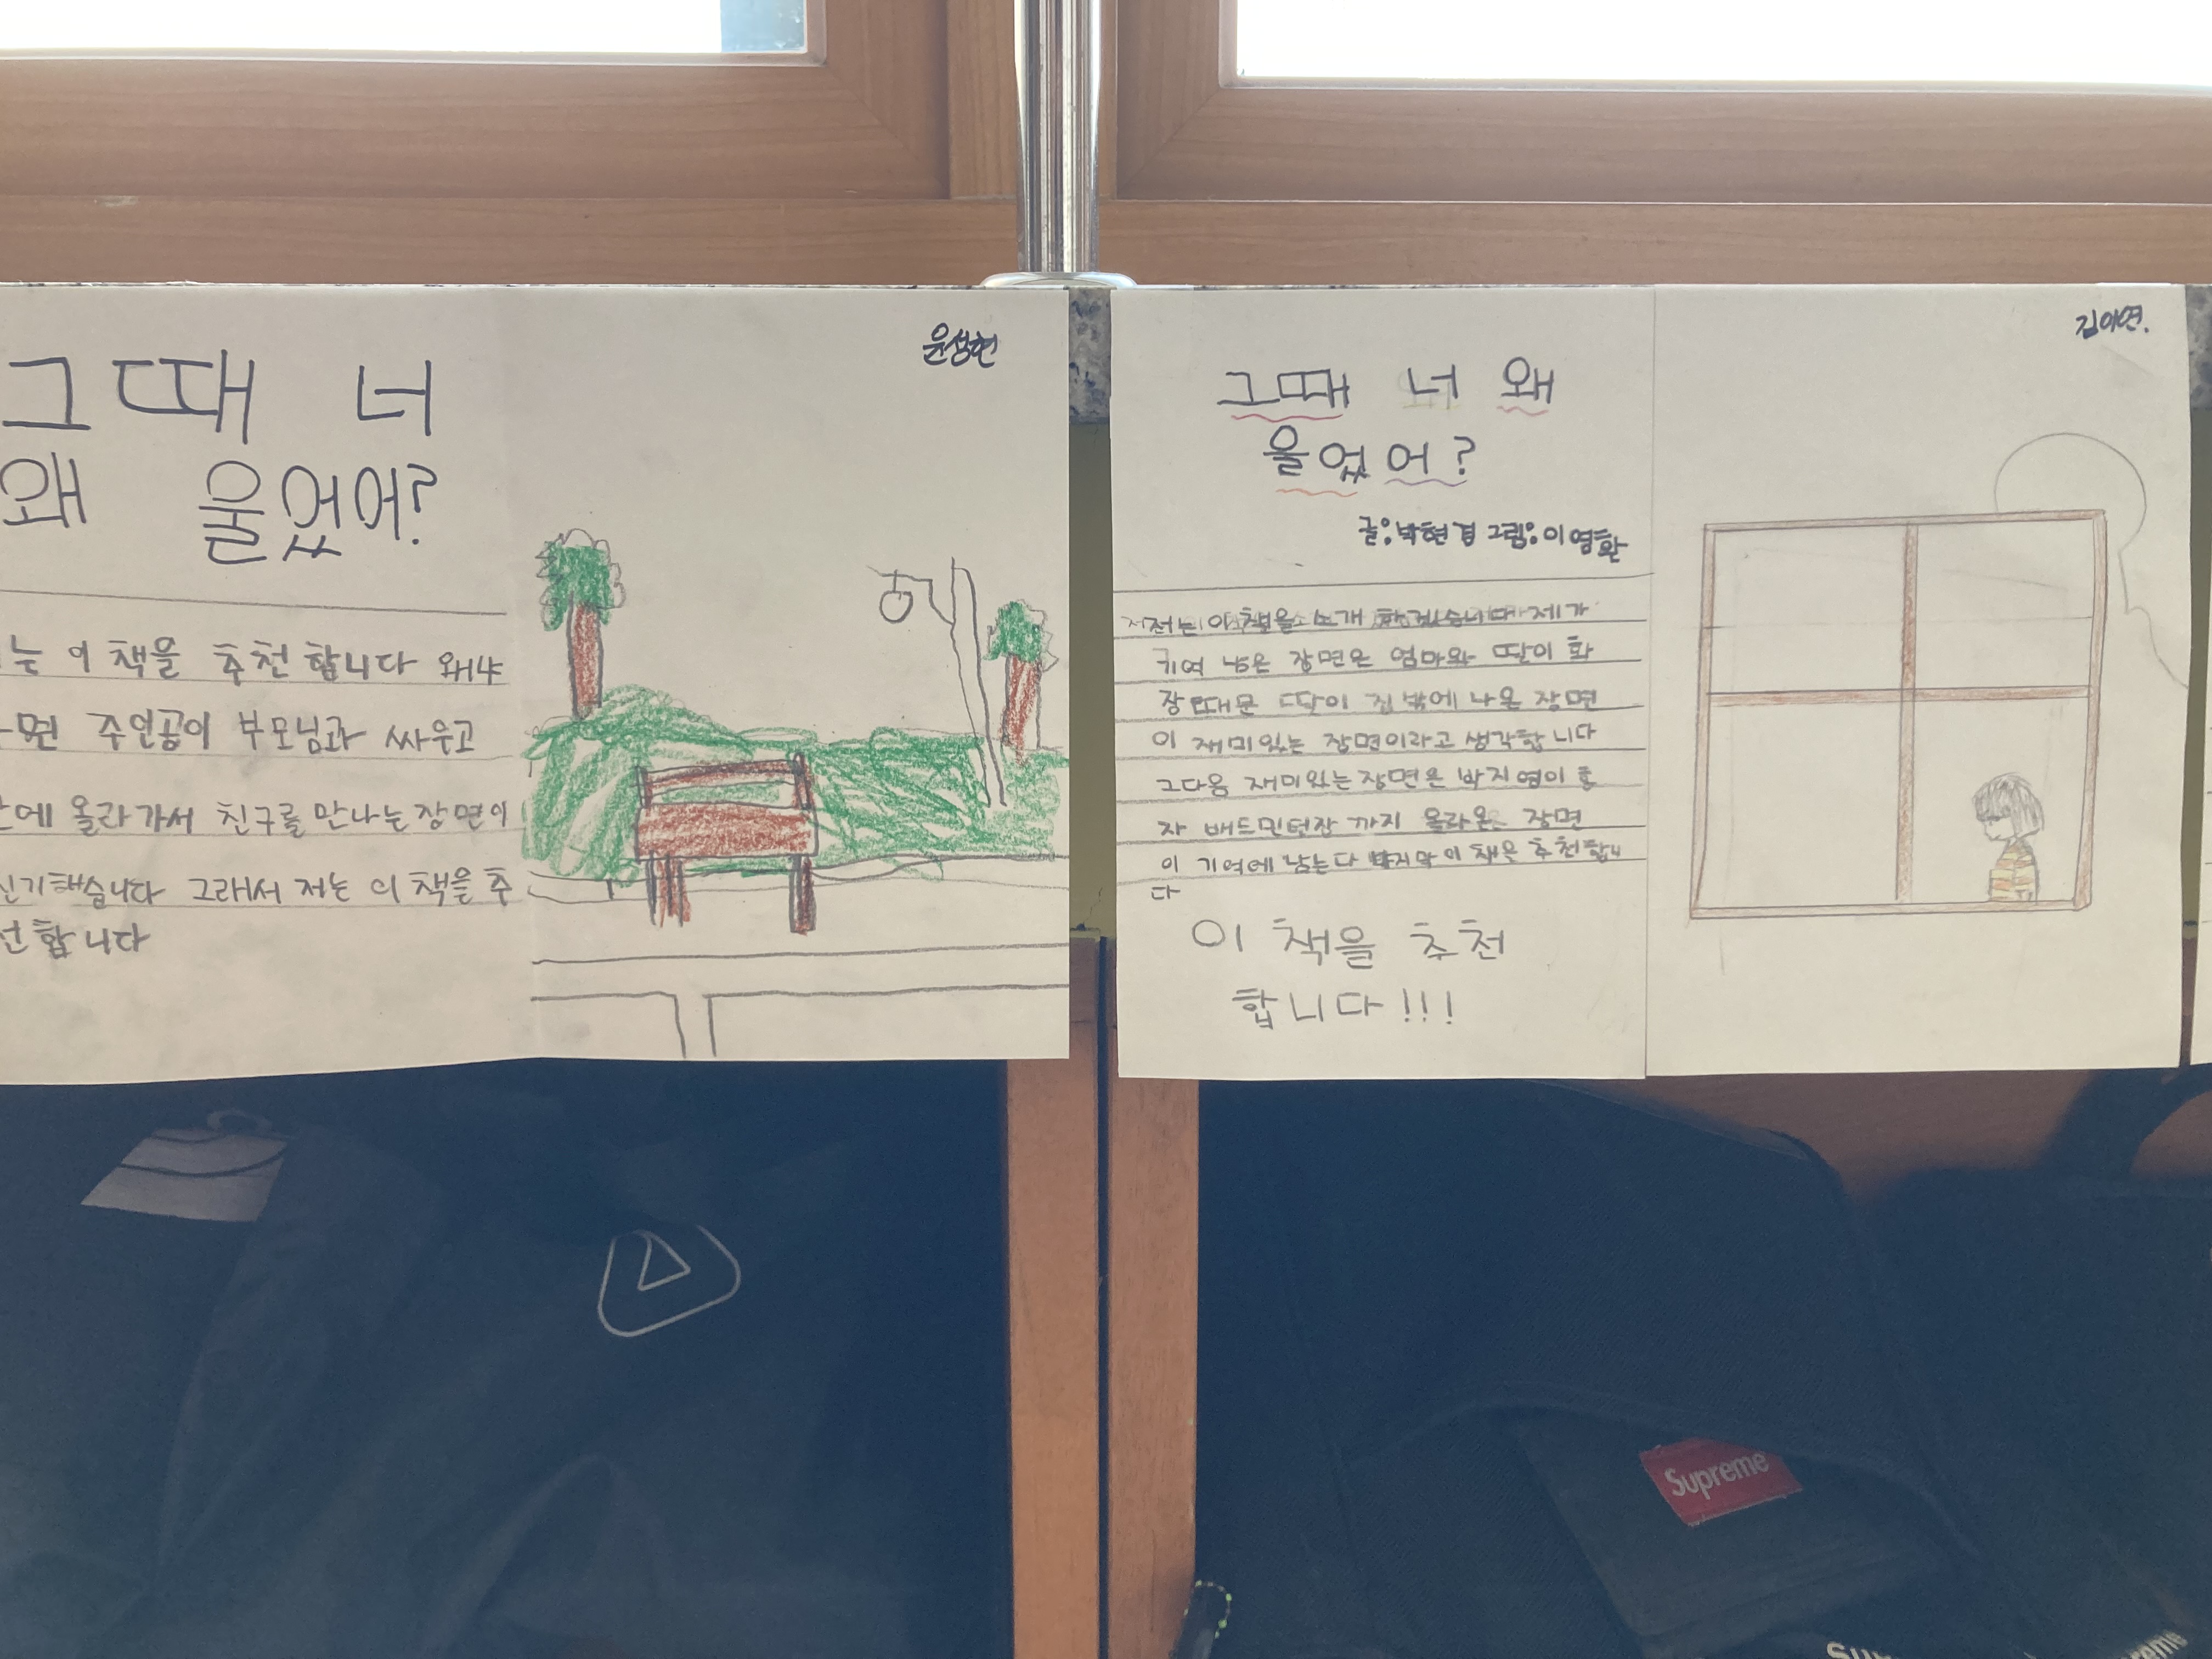 윤성현
그때 너
왜 울었어?
는 이 책을 추천 합니다 왜냐
면 주인공이 부모님과 싸우고
에 올라가서 친구를 만나는 장면이
신기했습니다 그래서 저는 이 책을 추
천 합니다
김아연.
그때 너 왜
울었어?
글:박현경 그림:이영환
저는 이 책을 소개 하겠습니다 제가
기억 남은 장면은 엄마와 딸이 화
장 때문 딸이 집 밖에 나온 장면
이 재미있는 장면이라고 생각합니다
그다음 재미있는 장면은 박지영이 혼
자 배드민턴장 까지 올라온 장면
이 기억에 남는다 마지막 이 책은 추천합니
다
이 책을 추천
합니다!!!
Supreme